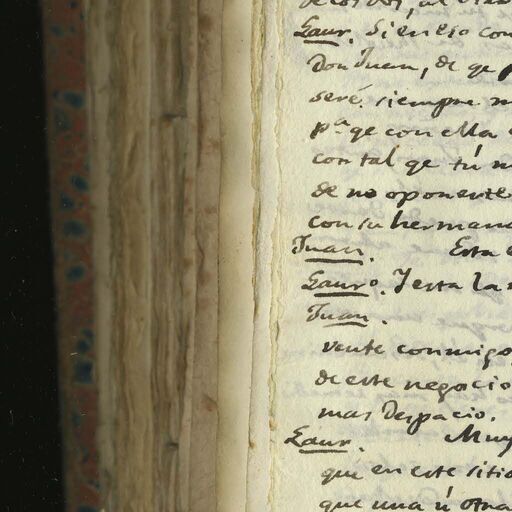 Laur. Si en eso con
Don Juan, de qe p
seré siempre m
pa qe con ella
con tal qe tú m
de no oponerte
con su hermana
Juan. Esta e
Lauro. Y esta la
Juan.
vente conmigo,
de este negocio
mas despacio.
Laur. Muy
que en este sitio
que una ú otra